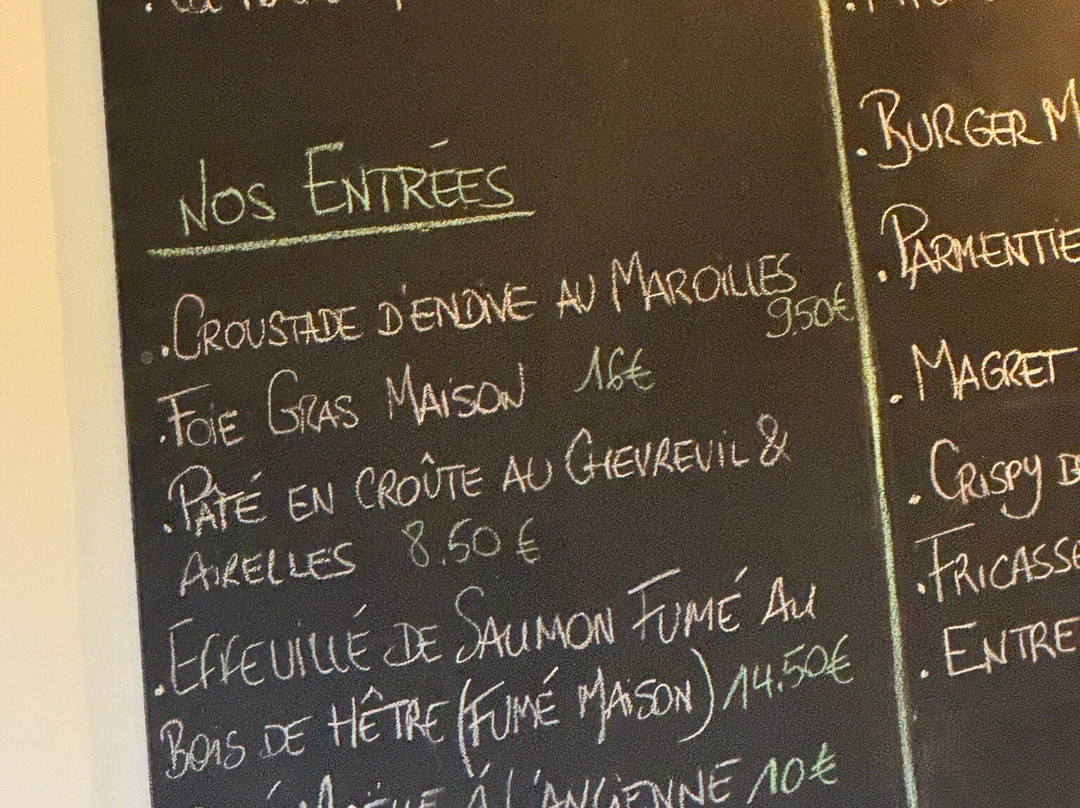 NOS ENTRÉES
. CROUSTADE D'ENDIVE AU MAROILLES
9.50€
. FOIE GRAS MAISON 16€
. PÂTÉ EN CROÛTE AU CHEVREUIL &
AIRELLES 8.50€
. EFFEUILLÉ DE SAUMON FUMÉ AU
BOIS DE HÊTRE (FUMÉ MAISON) 14.50€
À L'ANCIENNE 10€
. BURGER M
. PARMENTIE
. MAGRET
. CRISPY
. FRICASSE
. ENTRE